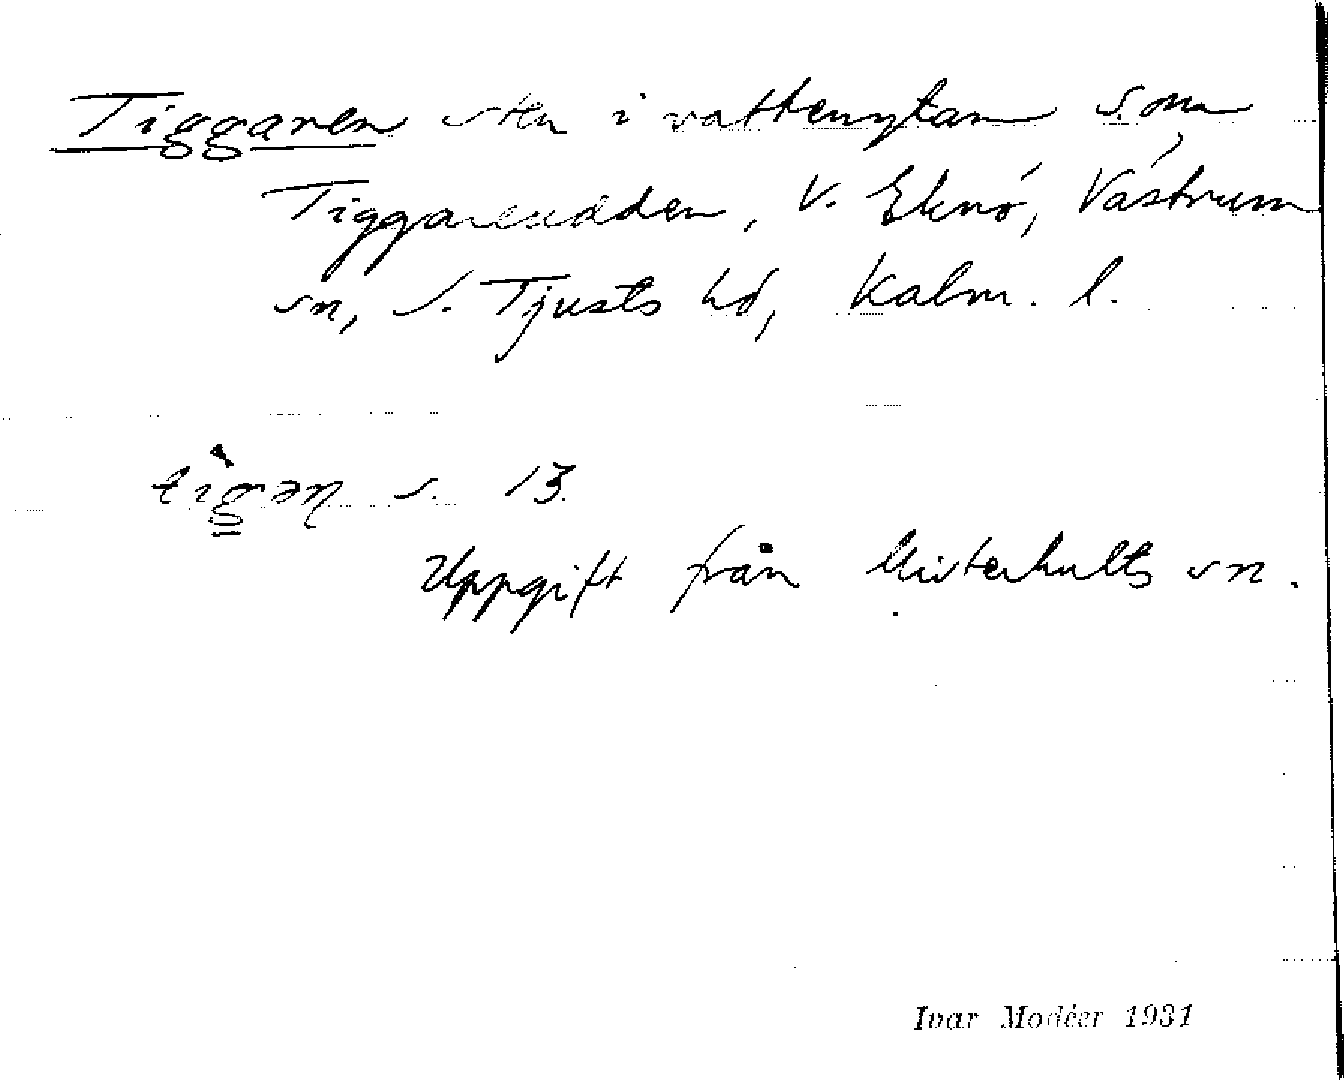 Tiggaren sten i vattenytan s. om
Tiggareudden, V. Eknö, Västrum
sn, S. Tjusts hd, Kalm. l.
s. 13.
Uppgift från Misterhults sn.
Ivar Modéer 1931